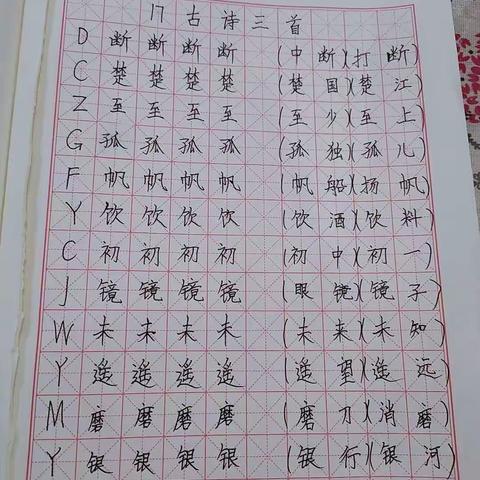 17 古诗三首
D 断 断 断 断 (中断)(打断)
C 楚 楚 楚 楚 (楚国)(楚江)
Z 至 至 至 至 (至少)(至上)
G 孤 孤 孤 孤 (孤独)(孤儿)
F 帆 帆 帆 帆 (帆船)(扬帆)
Y 饮 饮 饮 饮 (饮酒)(饮料)
C 初 初 初 初 (初中)(初一)
J 镜 镜 镜 镜 (眼镜)(镜子)
W 未 未 未 未 (未来)(未知)
Y 遥 遥 遥 遥 (遥望)(遥远)
M 磨 磨 磨 磨 (磨刀)(消磨)
Y 银 银 银 银 (银行)(银河)